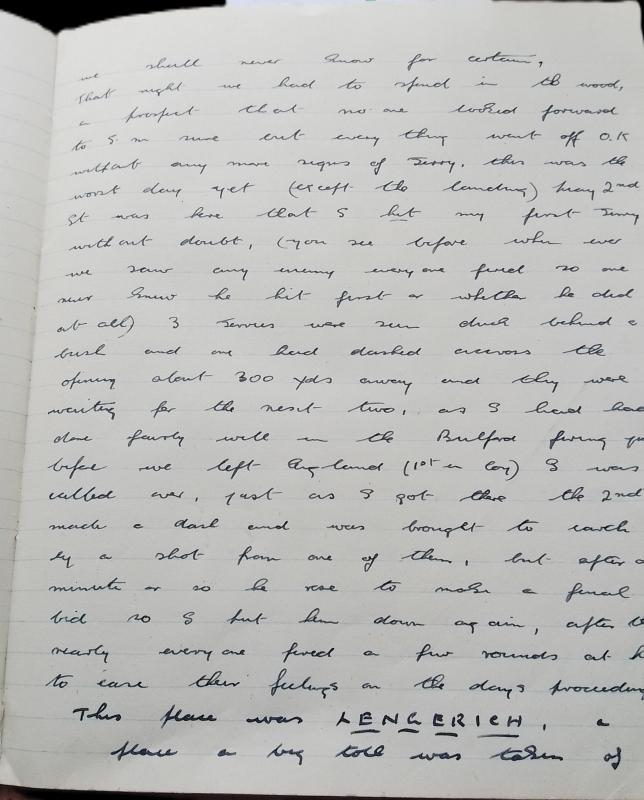 we shall never know for certain,
That night we had to spend in the wood,
a prospect that no one looked forward
to I'm sure but every thing went off O.K
without any more signs of Jerry, this was the
worst day yet (except the landing) May 2nd
It was here that I hit my first Jerry
without doubt, (you see before when ever
we saw any enemy everyone fired so one
never knew he hit first or whether he did
at all) 3 Jerries were seen duck behind a
bush and one had dashed across the
opening about 300 yds away and they were
waiting for the next two, as I had had
done fairly well in the Bulford firing
before we left England (1st in Coy) I was
called over, just as I got there the 2nd
made a dash and was brought to earth
by a shot from one of them, but after a
minute or so he rose to make a final
bid so I put him down again, after
nearly everyone fired a few rounds at
to ease their feelings on the days proceeding
This place was LENGERICH, a
place a big toll was taken of